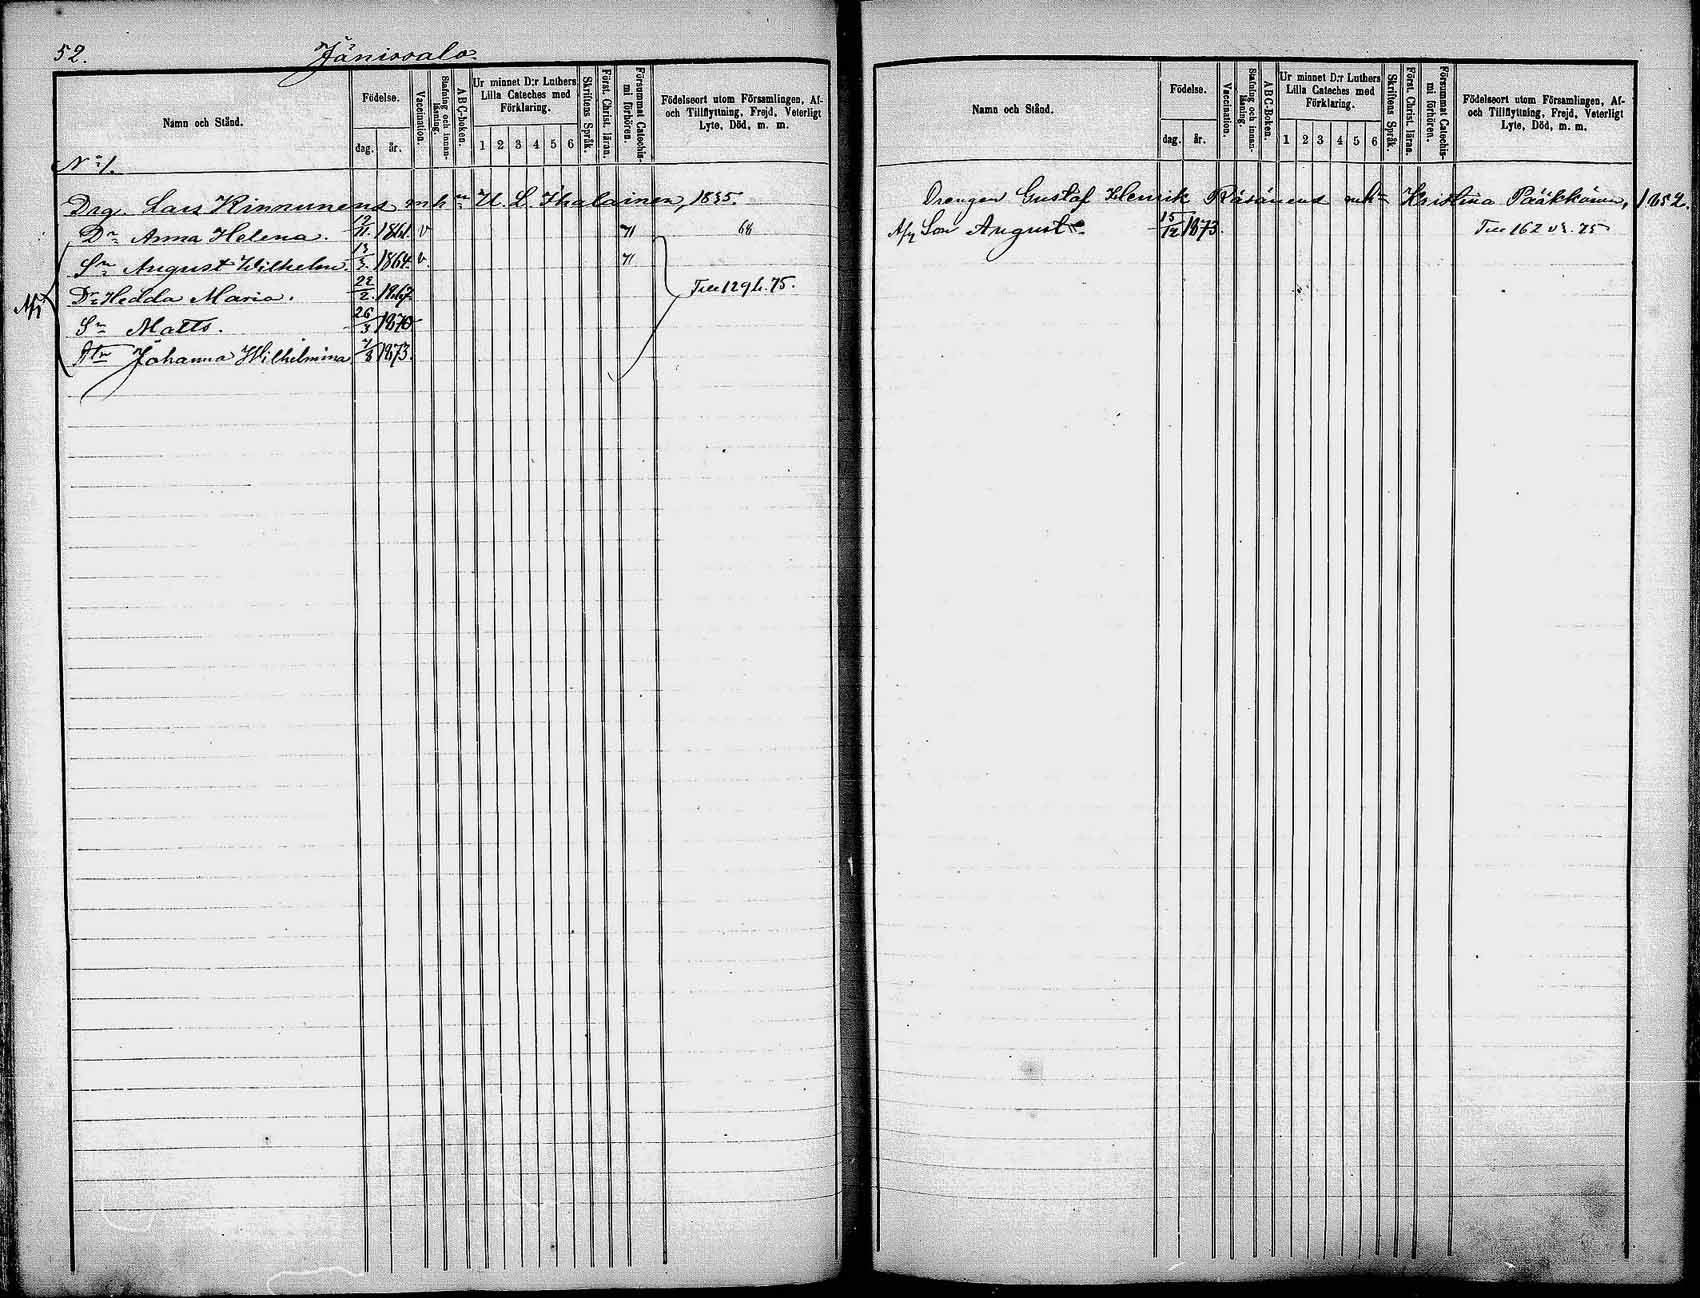 52. Jänissalo
Namn och Stånd. Födelse. dag. år. Vaccination. Stafning och innanläsning. A B C-boken. Ur minnet D:r Luthers Lilla Cateches med Förklaring. 1 2 3 4 5 6 Skriftens Språk. Först. Christ. läran. Försummat Catechismi förhören. Födelseort utom Församlingen, Af- och Tillflyttning, Frejd, Veterligt Lyte, Död, m. m.
No 1.
Drg. Lars Kinnunens m h n U. L. Ihalainen, 1835.
Dr Anna Helena. 1861. v 71 68
Sn August Wilhelm. 1864. v. 71
Dr Hedda Maria. 22/2. 1867. Till 129 h. 75.
Sn Matts. 26/3 1870
Dtr Johanna Wilhelmina 7/8 1873.
Namn och Stånd. Födelse. dag. år. Vaccination. Stafning och innanläsning. A B C-Boken. Ur minnet D:r Luthers Lilla Cateches med Förklaring. 1 2 3 4 5 6 Skriftens Språk. Först. Christ. läran. Försummat Catechismi förhören. Födelseort utom Församlingen, Af- och Tillflyttning, Frejd, Veterligt Lyte, Död, m. m.
Drengen Gustaf Henrik Räsänens m h n Kristina Pääkkönen, 1852.
Son August. 15/12 1873. Till 162 75